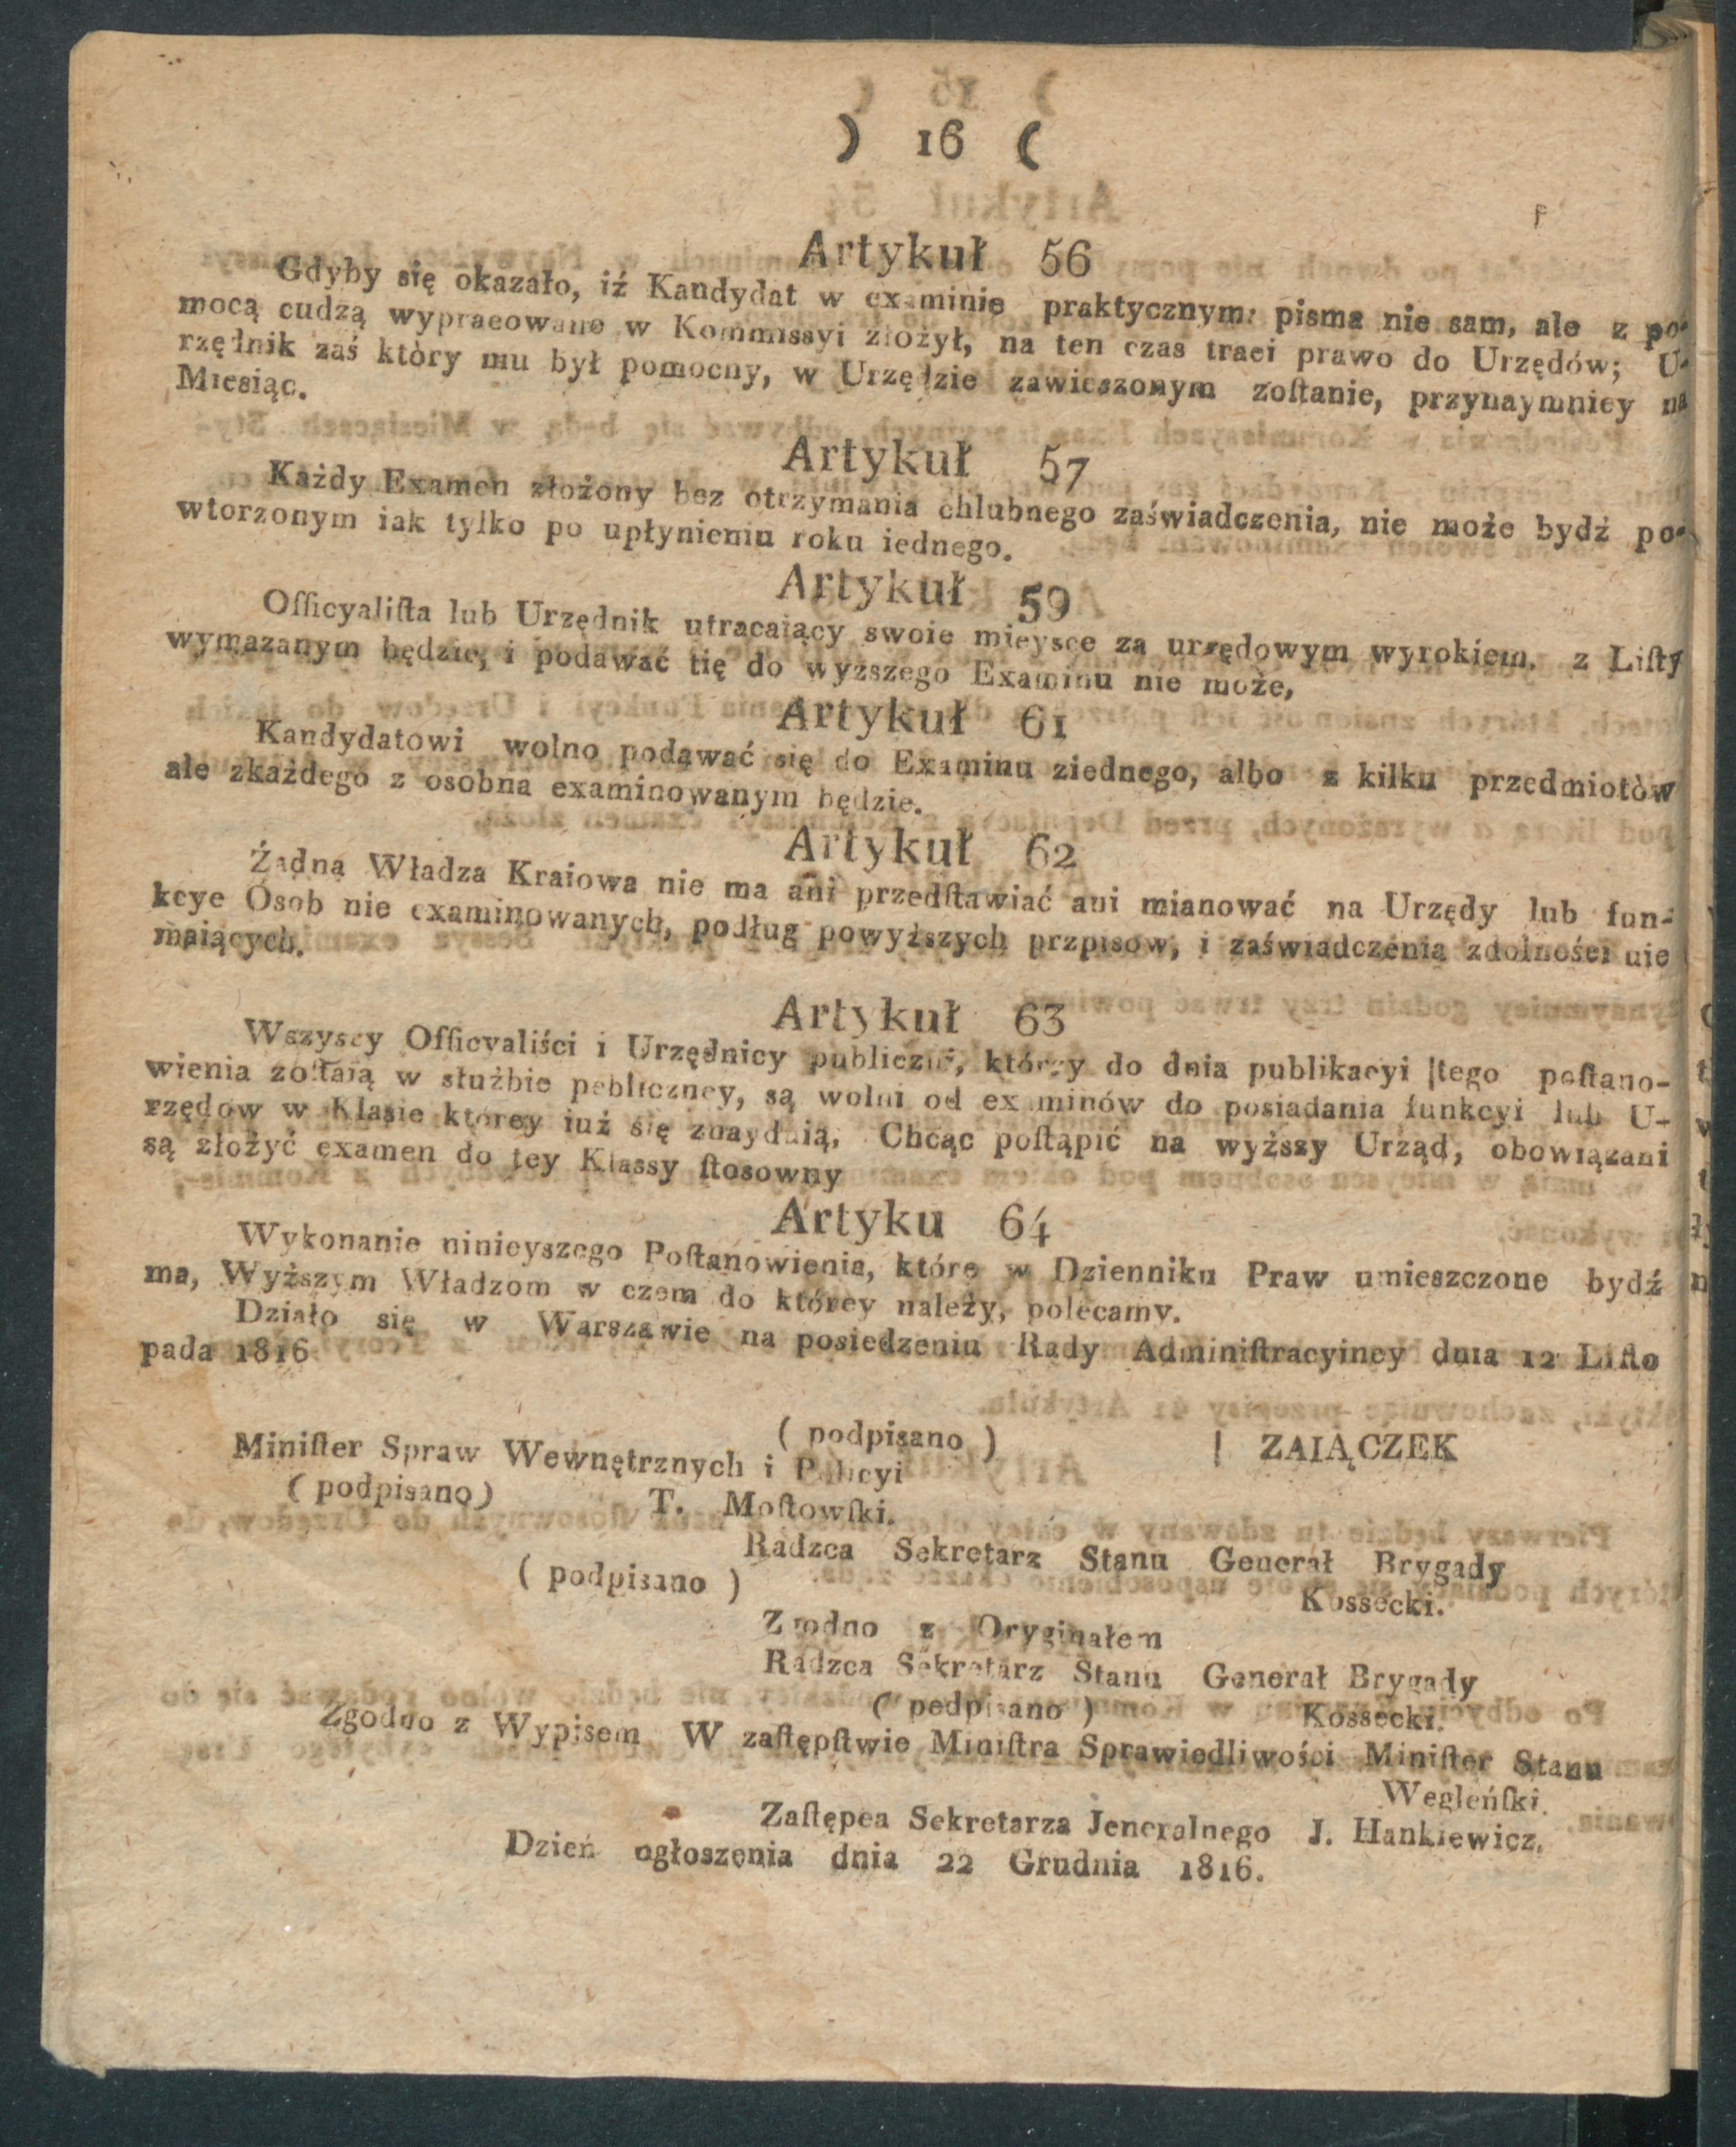 ) 16 (
Artykuł 56
Gdyby się okazało, iż Kandydat w examinie praktycznym: pisma nie sam, ale z po-
mocą cudzą wypracowane w Kommissyi złożył, na ten czas traci prawo do Urzędów; U-
rzędnik zaś który mu był pomocny, w Urzędzie zawieszonym zoſtanie, przynaymniey na
Miesiąc.
Artykuł 57
Każdy Examen złożony bez otrzymania chlubnego zaświadczenia, nie może bydź po-
wtorzonym iak tylko po upłynieniu roku iednego.
Artykuł 59
Officyaliſta lub Urzędnik utracaiący swoie mieysce za urzędowym wyrokiem. z Liſty
wymazanym będzie, i podawać tię do wyższego Examinu nie może,
Artykuł 61
Kandydatowi wolno podawać się do Examinu ziednego, albo z kilku przedmiotòw
ale zkażdego z osobna examinowanym będzie.
Artykuł 62
Żadna Władza Kraiowa nie ma ani przedſtawiać ani mianować na Urzędy lub fun-
kcye Osob nie examinowanych, podług powyższych przpisow, i zaświadczenia zdolności nie
maiących.
Artykuł 63
Wszyscy Officyaliści i Urzędnicy publiczni, którzy do dnia publikacyi |tego poſtano-
wienia zoſtaią w służbie publiczney, są wolni od examinów do posiadania funkcyi lub U-
rzędow w Klasie ktorey iuż się znayduią. Chcąc poſtąpić na wyższy Urząd, obowiązani
są złożyć examen do tey Klassy ſtosowny
Artyku 64
Wykonanie ninieyszego Poſtanowienia, które w Dzienniku Praw umieszczone bydź
ma, Wyższym Władzom w czem do którey należy, polecamy.
Działo się w Warszawie na posiedzeniu Rady Adminiſtracyiney dnia 12 Liſto
pada 1816
( podpisano ) | ZAIĄCZEK
Miniſter Spraw Wewnętrznych i Policyi
( podpisano) T. Moſtowſki.
Radzca Sekretarz Stanu Generał Brygady
( podpisano ) Kossecki.
Zgodno z Oryginałem
Radzca Sekretarz Stanu Generał Brygady
( podpisano ) Kossecki.
Zgodno z Wypisem W zaſtępſtwie Miniſtra Sprawiedliwości Miniſter Stanu
Wegleńſki.
Zaſtępca Sekretarza Jeneralnego J. Hankiewicz.
Dzień ogłoszenia dnia 22 Grudnia 1816.